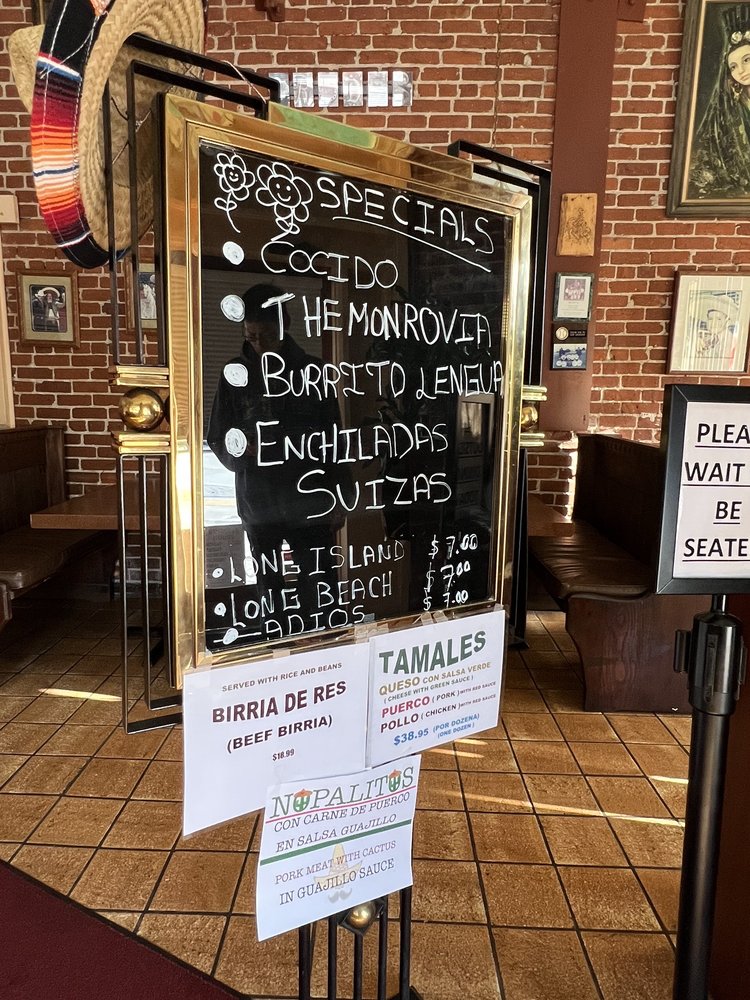 SPECIALS
COCIDO
THE MONROVIA
BURRITO LENGUA
ENCHILADAS
SUIZAS
LONG ISLAND $7.00
LONG BEACH $7.00
ADIOS $7.00
SERVED WITH RICE AND BEANS
BIRRIA DE RES
(BEEF BIRRIA)
$18.99
TAMALES
QUESO CON SALSA VERDE
(CHEESE WITH GREEN SAUCE)
PUERCO (PORK) WITH RED SAUCE
POLLO (CHICKEN) WITH RED SAUCE
$38.95 (POR DOZENA)
(ONE DOZEN)
NOPALITOS
CON CARNE DE PUERCO
EN SALSA GUAJILLO
PORK MEAT WITH CACTUS
IN GUAJILLO SAUCE
PLEA
WAIT
BE
SEATE